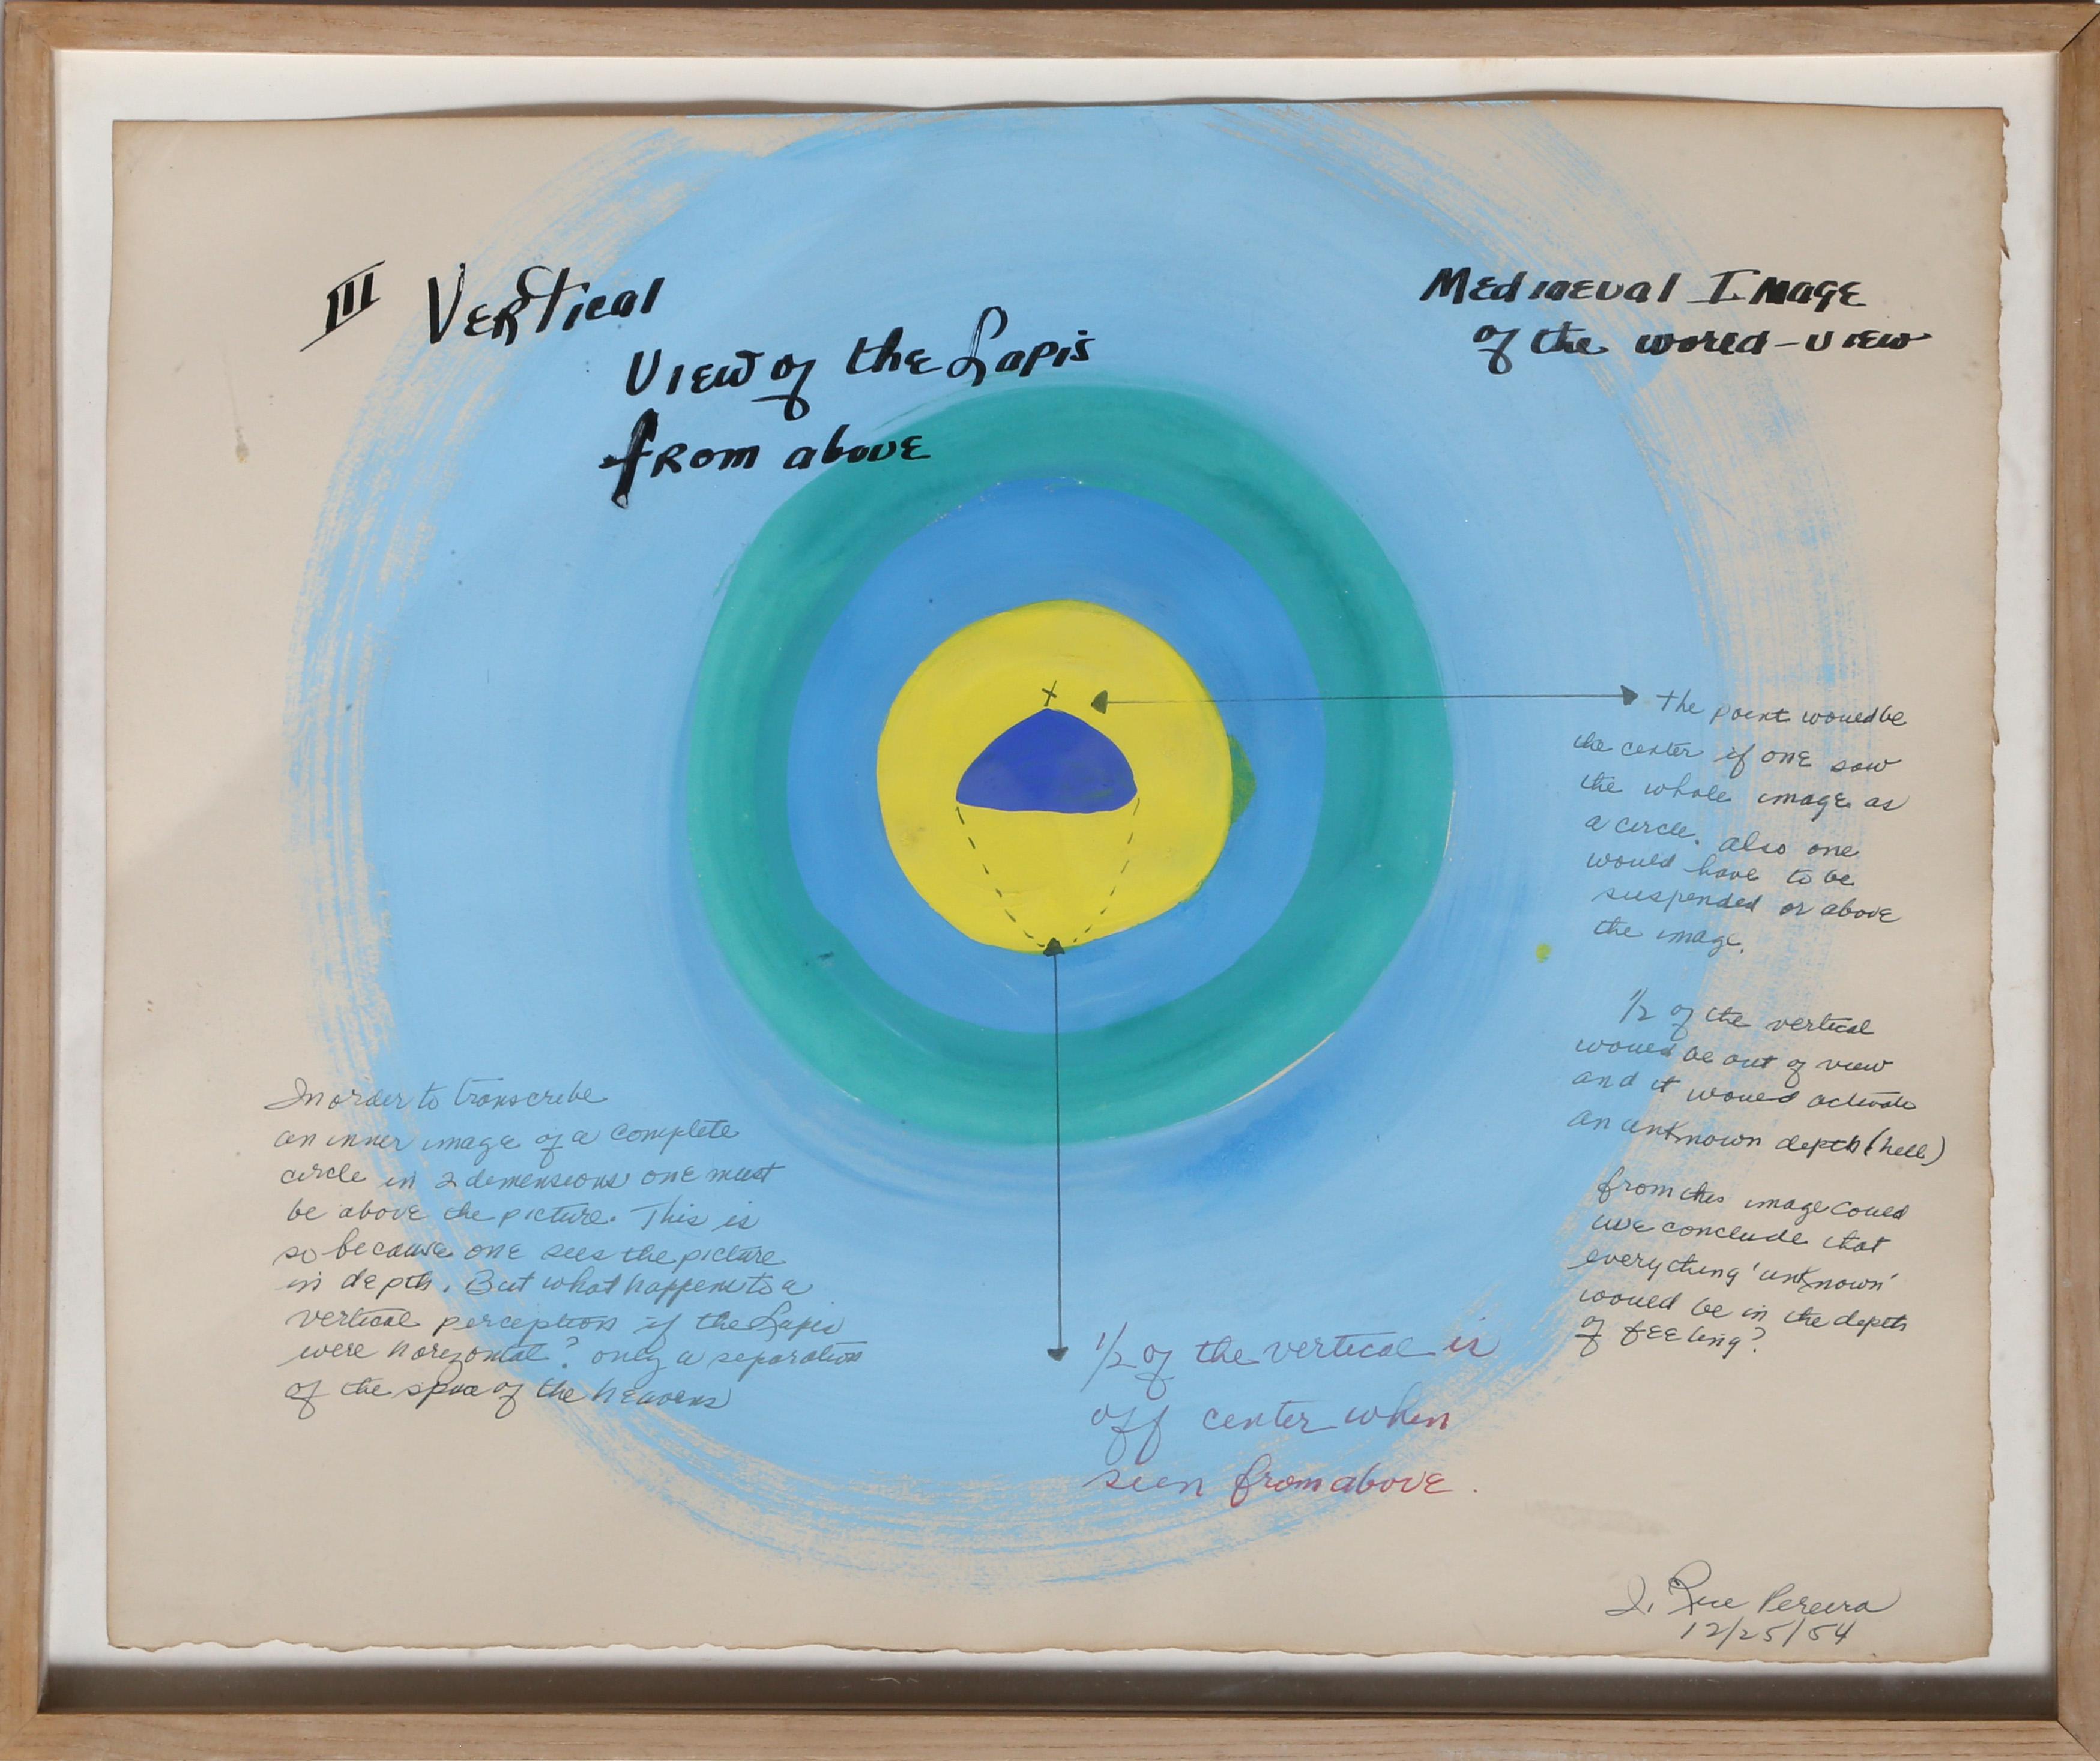 III Vertical
View of the Lapis
from above
Mediaeval Image
of the world-view
x
the point would be
the center if one saw
the whole image as
a circle. also one
would have to be
suspended or above
the image.
1/2 of the vertical
would be out of view
and it would activate
an unknown depth (hell)
from this image could
we conclude that
everything 'unknown'
would be in the depth
of feeling?
In order to transcribe
an inner image of a complete
circle in 2 demensions one must
be above the picture. This is
so because one sees the picture
in depth. But what happens to a
vertical perception if the Lapis
were horizontal? only a separation
of the space of the heavens
1/2 of the vertical is
off center when
seen from above.
I. Rice Pereira
12/25/54